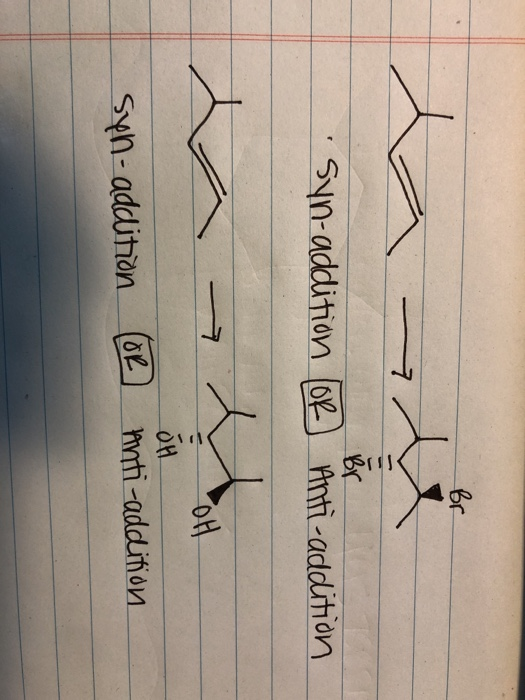 Br
Br
Syn-addition OR Anti-addition
OH
OH
Syn-addition OR Anti-addition